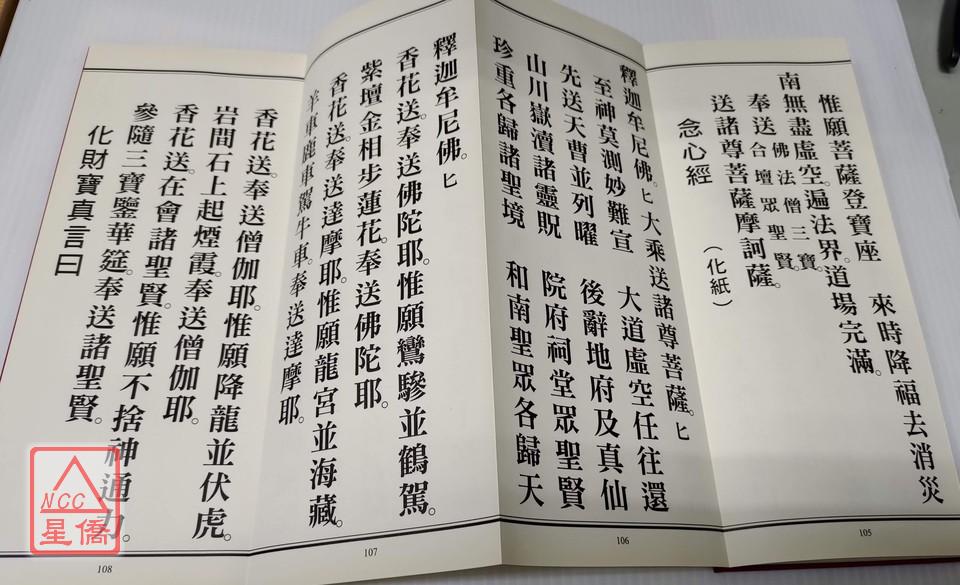 惟願菩薩登寶座　來時降福去消災
南無盡虛空。遍法界。道場完滿。
奉送佛法僧三寶。合壇眾聖賢。
送諸尊菩薩摩訶薩。
念心經　（化紙）
105
釋迦牟尼佛。匕大乘送諸尊菩薩。匕
至神莫測妙難宣　大道虛空任往還
先送天曹並列曜　後辭地府及真仙
山川嶽瀆諸靈貺　院府祠堂眾聖賢
珍重各歸諸聖境　和南聖眾各歸天
106
釋迦牟尼佛。匕
香花送。奉送佛陀耶。惟願鸞驂並鶴駕。
紫壇金相步蓮花。奉送佛陀耶。
香花送。奉送達摩耶。惟願龍宮並海藏。
羊車鹿車駕牛車。奉送達摩耶。
107
香花送。奉送僧伽耶。惟願降龍並伏虎。
岩間石上起煙霞。奉送僧伽耶。
香花送。在會諸聖賢。惟願不捨神通力。
參隨三寶鑒華筵。奉送諸聖賢。
化財寶真言曰
108
NCC
星僑